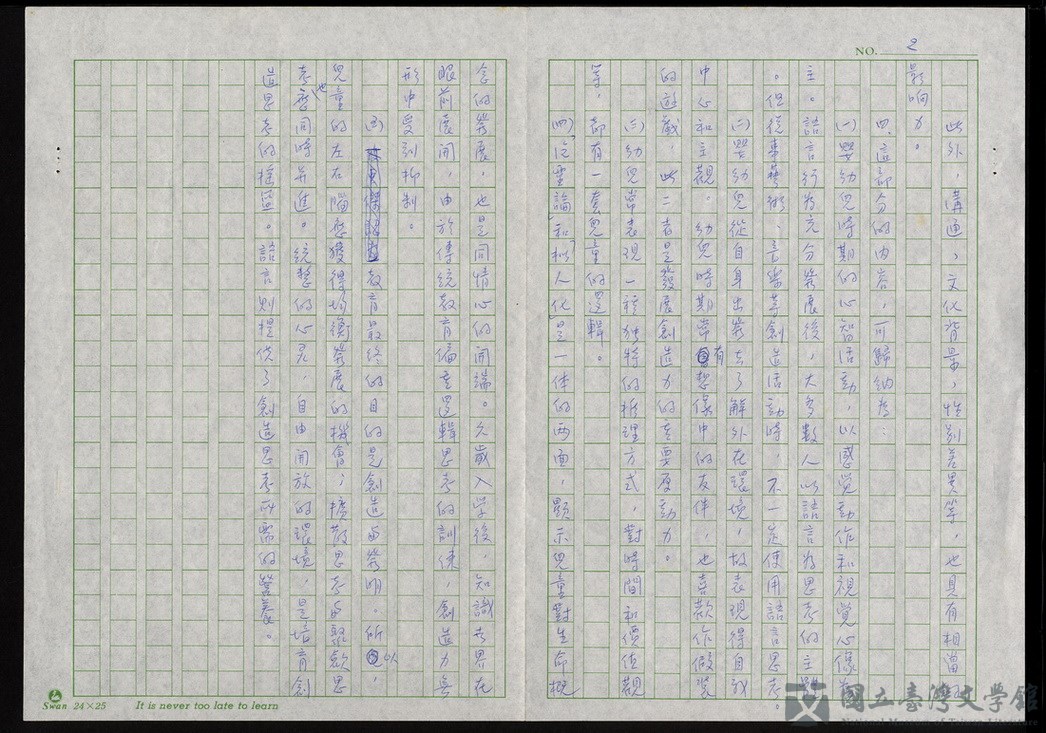 NO. 2
此外，溝通，文化背景，性別差異等，也具有相當的
影响力。
四、這部分的內容，可歸納為：
㈠嬰幼兒時期的心智活動，以感覺動作和視覺心像為
主。語言行為充分發展後，大多數人以語言為思考的主體
。但從事藝術、音樂等創造活動時，不一定使用語言思考。
㈡嬰幼兒從自身出發去了解外在環境，故表現得自我
中心和主觀。幼兒時期常有想像中的友伴，也喜歡作假裝
的遊戲，此二者是發展創造力的重要原動力。
㈢幼兒常表現一種獨特的推理方式，對時間和價值觀
等，都有一套兒童的邏輯。
㈣泛靈論和擬人化是一体的两面，顯示兒童對生命概
念的發展，也是同情心的開端。六歲入學後，知識世界在
眼前展開，由於傳統教育偏重邏輯思考的訓練，創造力無
形中受到抑制。
㈤教育最終的目的是創造與發明。所以，
兒童的左右腦應獲得均衡發展的機會；擴散思考與聚歛思
考也應同時並進。統整的心灵，自由開放的環境，是培育創
造思考的搖籃。語言則提供了創造思考所需的營養。
Swan 24×25 It is never too late to learn
國立臺灣文學館
National Museum of Taiwan Literature